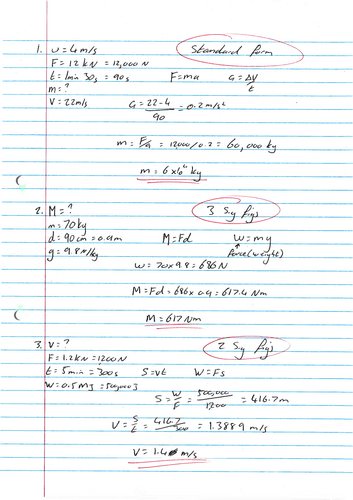 1. u = 4m/s
Standard form
F = 12kN = 12,000N
t = 1min 30s = 90s F=ma a = ΔV/t
m = ?
V = 22m/s a = 22-4/90 = 0.2m/s²
m = F/a = 12000/0.2 = 60,000 kg
m = 6x10⁴ kg
2. M = ?
3 sig figs
m = 70kg
d = 90cm = 0.9m M=Fd W=mg
g = 9.8N/kg force (weight)
W = 70x9.8 = 686N
M = Fd = 686x0.9 = 617.4Nm
M = 617Nm
3. V = ?
2 sig figs
F = 1.2kN = 1200N
t = 5min = 300s S=vt W=Fs
W = 0.5MJ = 500,000J
S = W/F = 500,000/1200 = 416.7m
V = S/t = 416.7/300 = 1.3889 m/s
V = 1.4 m/s